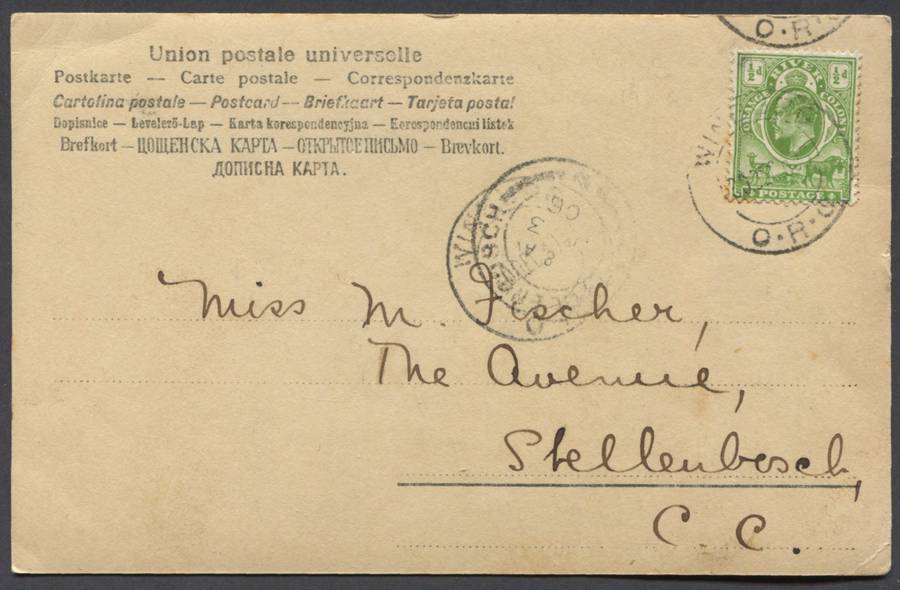 Union postale universelle
Postkarte — Carte postale — Correspondenzkarte
Cartolina postale — Postcard — Briefkaart — Tarjeta postal
Dopisnice — Levelező-Lap — Karta korespondencyjna — Korespondencni listek
Brefkort — ЦОЩЕНСКА КАРТА — ОТКРЫТОЕ ПИСЬМО — Brevkort.
ДОПИСНА КАРТА.
O·R·C
½d ½d
ORANGE RIVER COLONY
POSTAGE
WIN
O·R·C
WIN
BOSCH
A
3
06
Miss M. Fischer,
The Avenue,
Stellenbosch,
C. C.